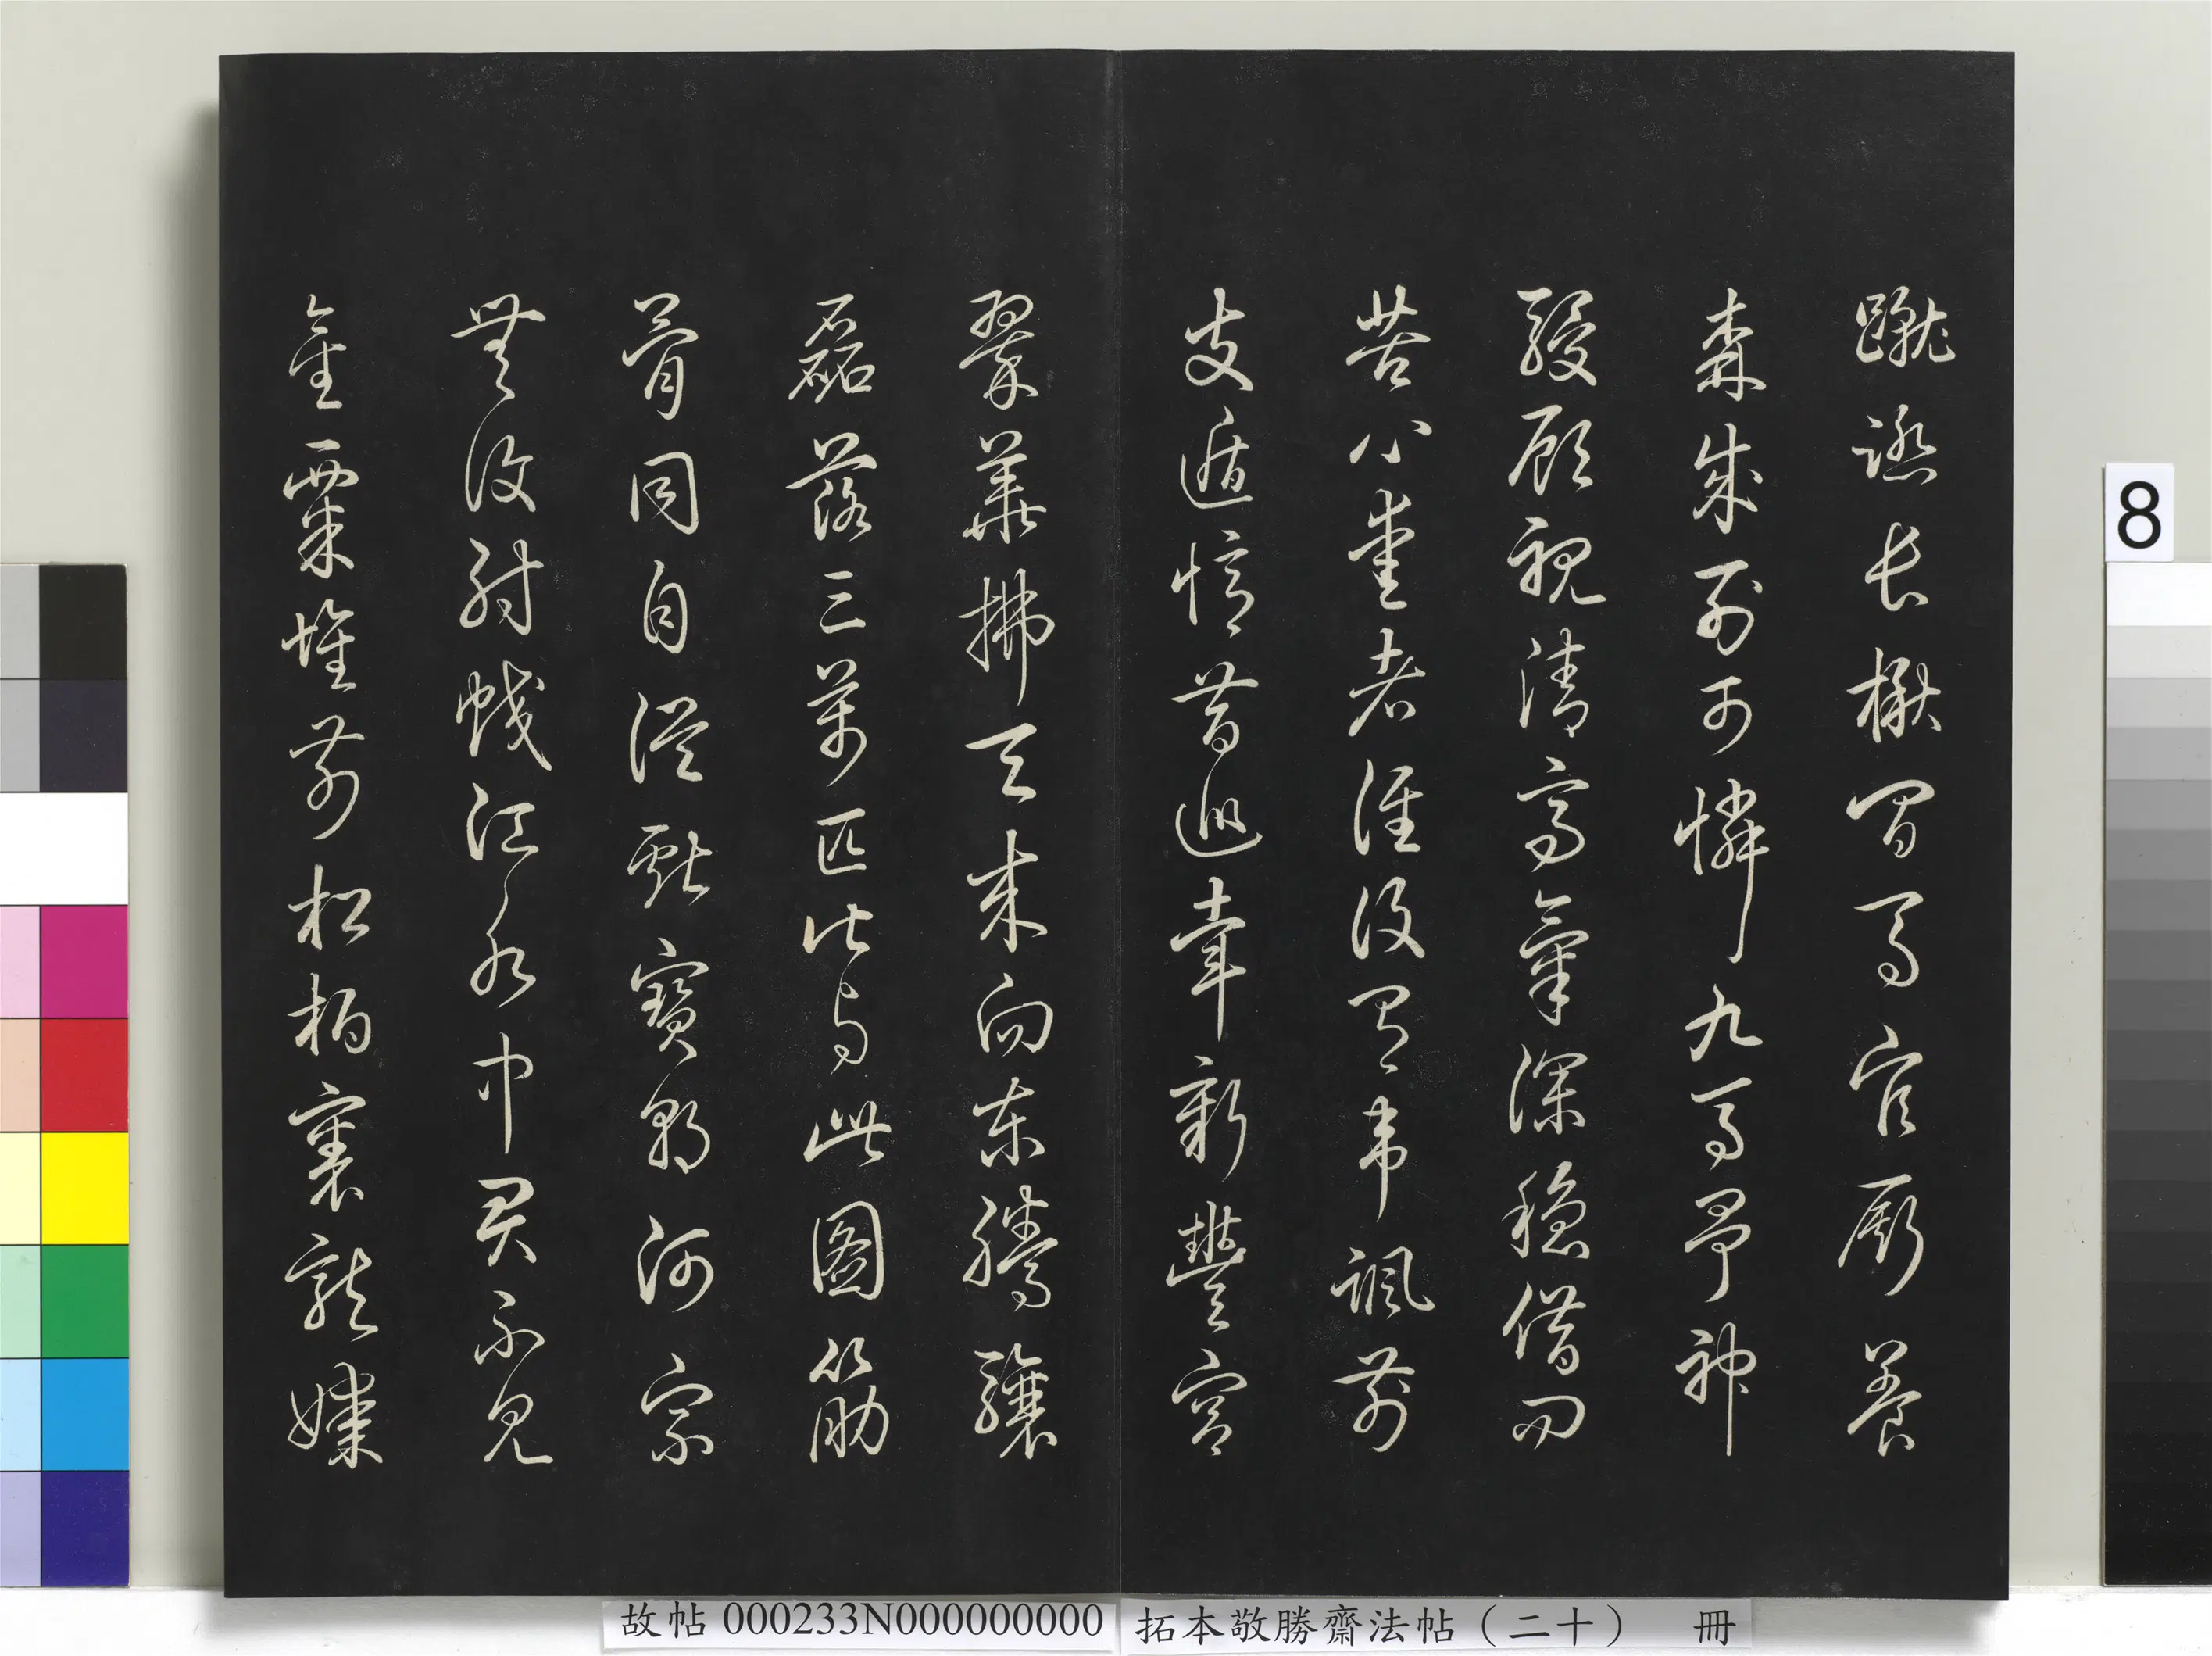 蹴踏長楸間馬官廝養
森成列可憐九馬爭神
駿顧視清高氣深穩借問
苦心愛者誰後有韋諷前
支遁憶昔巡幸新豐宮
翠華拂天來向東騰驤
磊落三萬匹皆與此圖筋
骨同自從獻寶朝河宗
無復射蛟江水中君不見
金粟堆前松柏裏龍媒
8
故帖000233N000000000 拓本敬勝齋法帖（二十） 冊